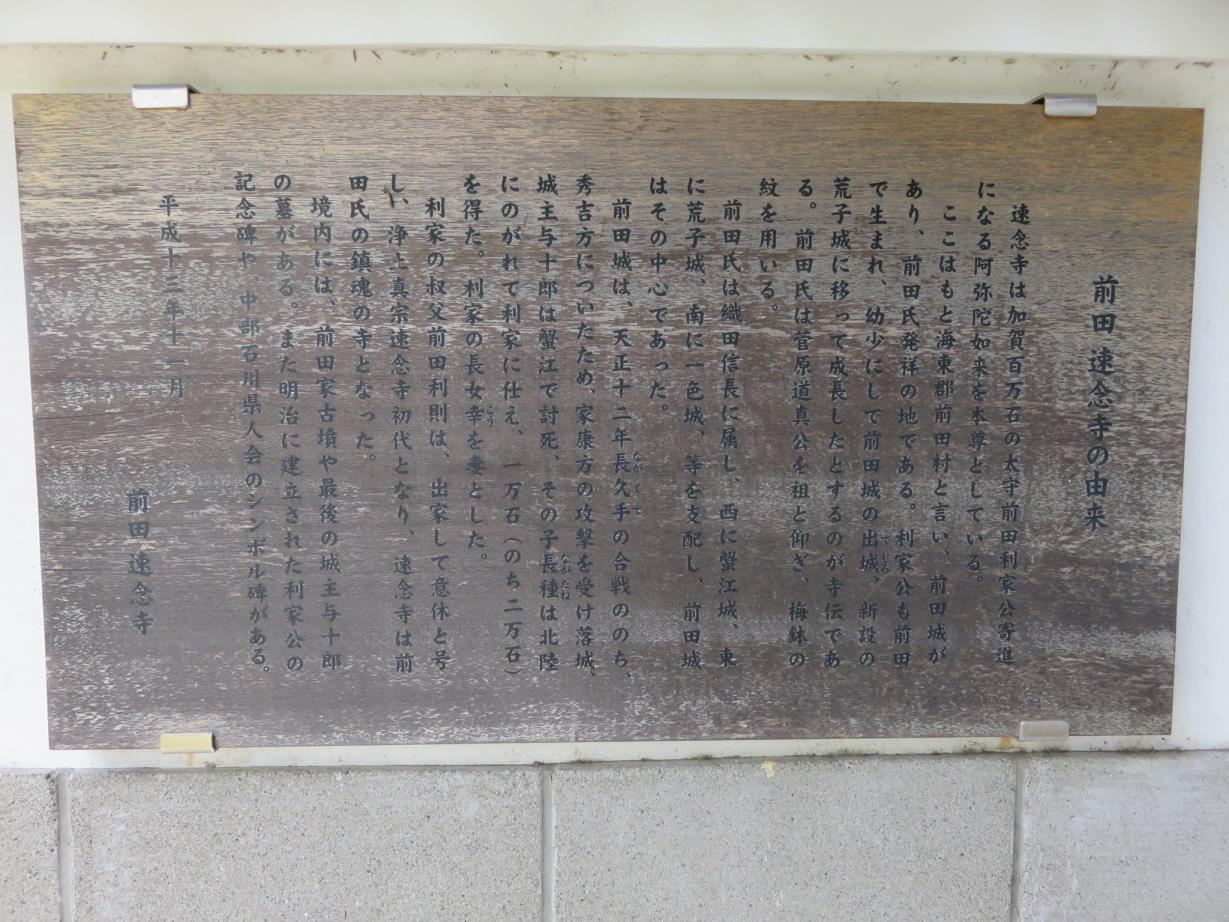 前田速念寺の由来
速念寺は加賀百万石の太守前田利家公寄進
になる阿弥陀如来を本尊としている。
ここはもと海東郡前田村と言い、前田城が
あり、前田氏発祥の地である。利家公も前田
で生まれ、幼少にして前田城の出城、新設の
でじろ
荒子城に移って成長したとするのが寺伝であ
る。前田氏は菅原道真公を祖と仰ぎ、梅鉢の
紋を用いる。
前田氏は織田信長に属し、西に蟹江城、東
に荒子城、南に一色城、等を支配し、前田城
はその中心であった。
前田城は、天正十二年長久手の合戦ののち、
ながくて
秀吉方についたため、家康方の攻撃を受け落城、
城主与十郎は蟹江で討死、その子長種は北陸
ながたね
にのがれて利家に仕え、一万石(のち二万石)
を得た。利家の長女幸を妻とした。
こう
利家の叔父前田利則は、出家して意休と号
し、浄土真宗速念寺初代となり、速念寺は前
田氏の鎮魂の寺となった。
境内には、前田家古墳や最後の城主与十郎
の墓がある。また明治に建立された利家公の
記念碑や、中部石川県人会のシンボル碑がある。
平成十三年十一月
前田速念寺